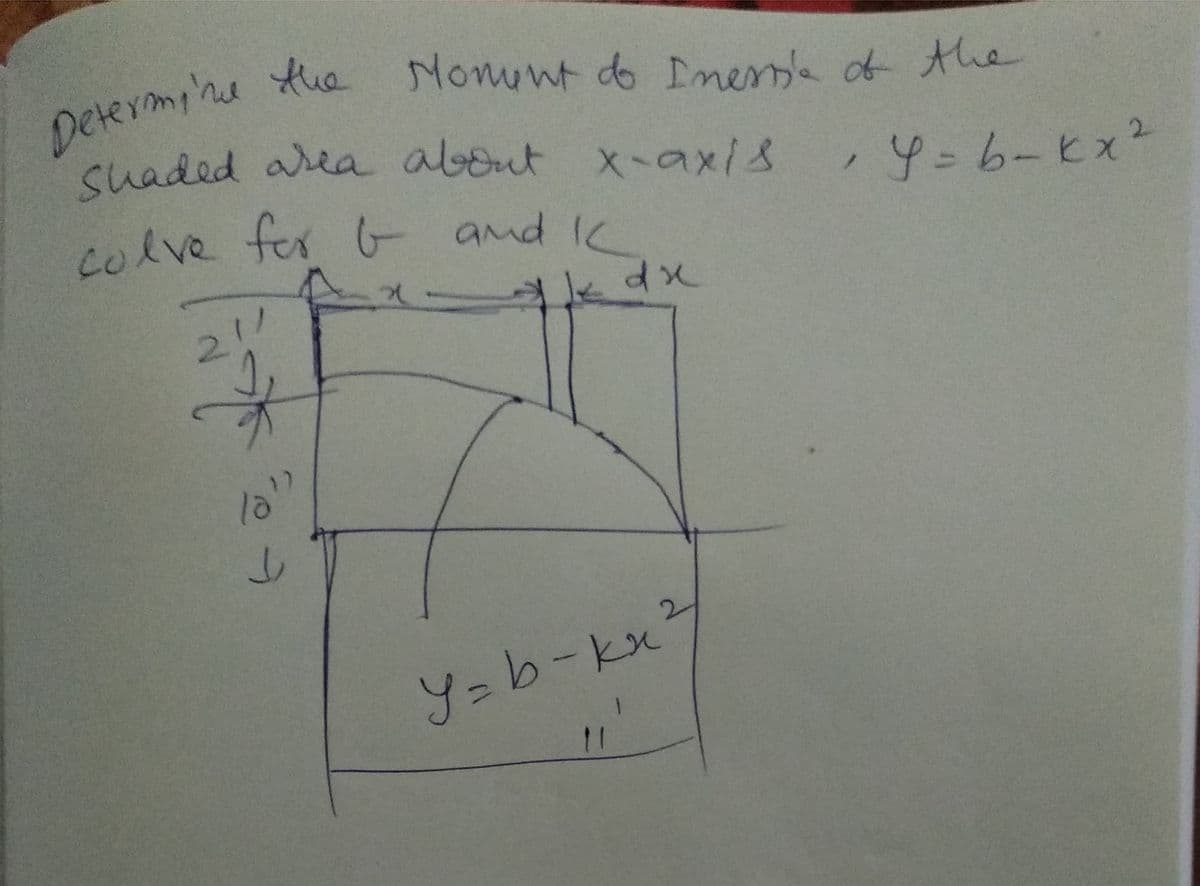 Determine the Moment do Inertia of the
Shaded area about x-axis , y = b - kx²
solve for b and k
x dx
2"
10"
y = b - kx²
11'